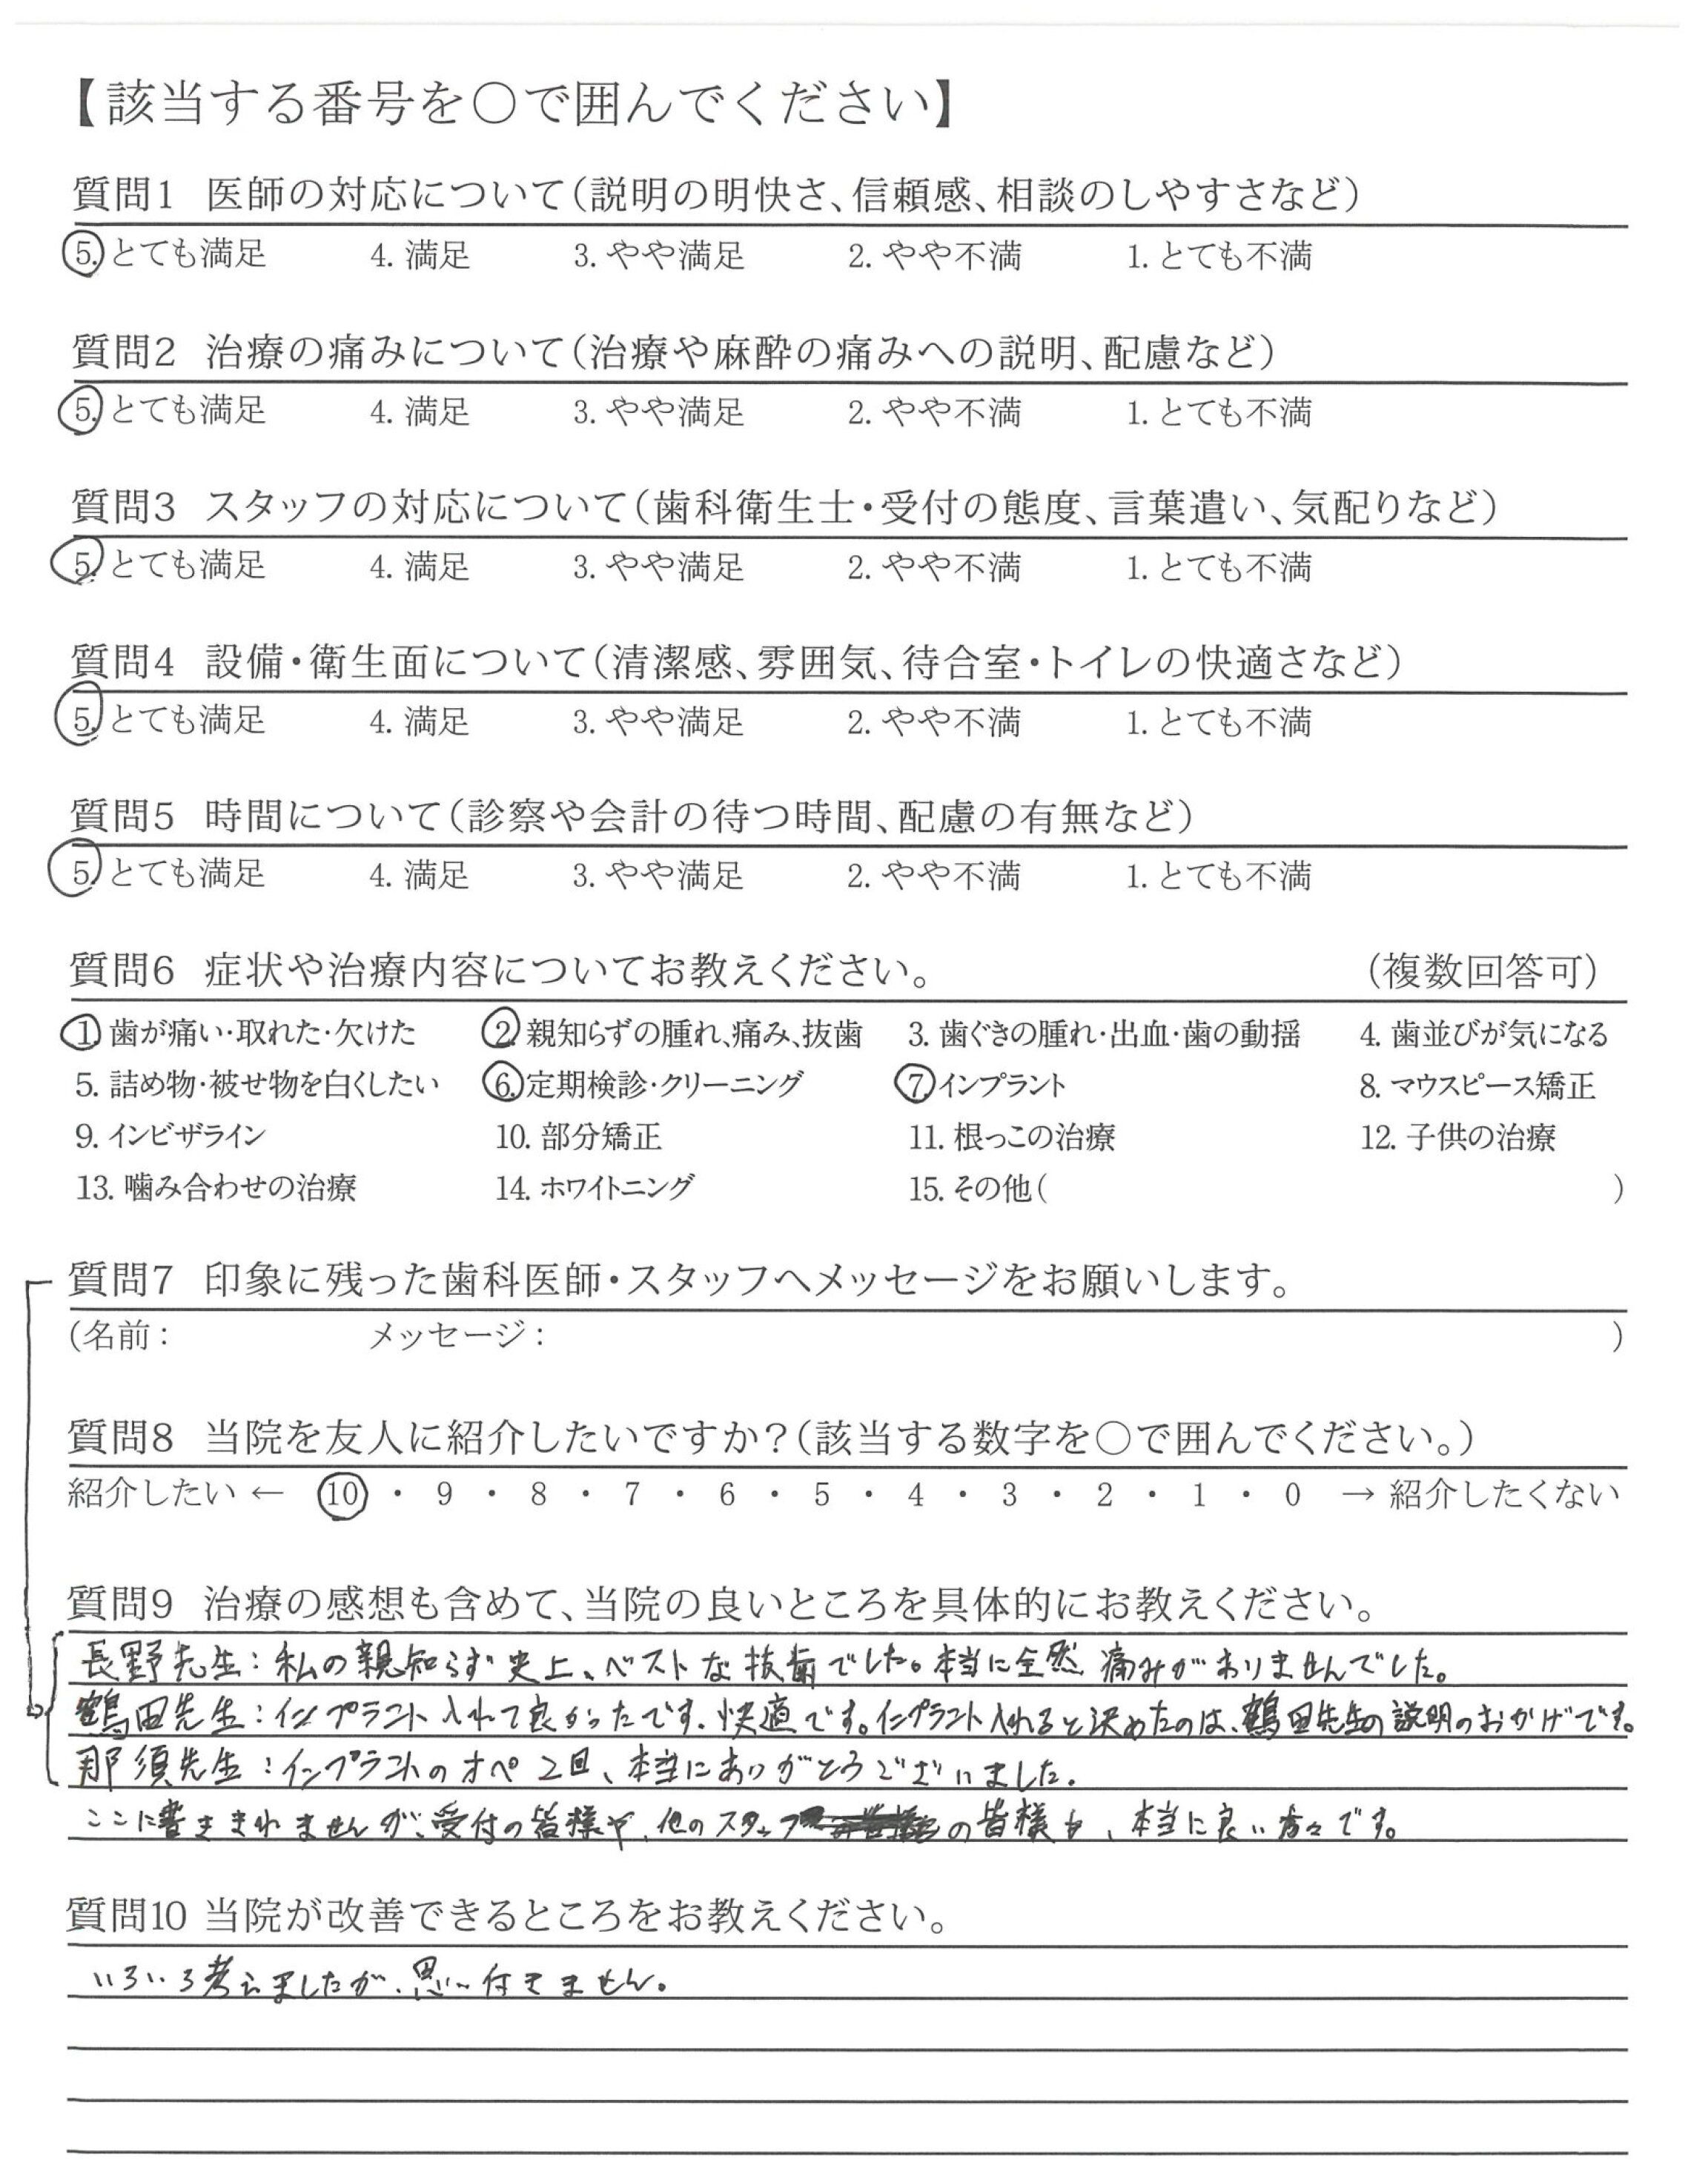 【該当する番号を〇で囲んでください】
質問1 医師の対応について(説明の明快さ、信頼感、相談のしやすさなど)
5. とても満足 4. 満足 3. やや満足 2. やや不満 1. とても不満
質問2 治療の痛みについて(治療や麻酔の痛みへの説明、配慮など)
5. とても満足 4. 満足 3. やや満足 2. やや不満 1. とても不満
質問3 スタッフの対応について(歯科衛生士・受付の態度、言葉遣い、気配りなど)
5. とても満足 4. 満足 3. やや満足 2. やや不満 1. とても不満
質問4 設備・衛生面について(清潔感、雰囲気、待合室・トイレの快適さなど)
5. とても満足 4. 満足 3. やや満足 2. やや不満 1. とても不満
質問5 時間について(診察や会計の待つ時間、配慮の有無など)
5. とても満足 4. 満足 3. やや満足 2. やや不満 1. とても不満
質問6 症状や治療内容についてお教えください。 (複数回答可)
1. 歯が痛い・取れた・欠けた 2. 親知らずの腫れ、痛み、抜歯 3. 歯ぐきの腫れ・出血・歯の動揺 4. 歯並びが気になる
5. 詰め物・被せ物を白くしたい 6. 定期検診・クリーニング 7. インプラント 8. マウスピース矯正
9. インビザライン 10. 部分矯正 11. 根っこの治療 12. 子供の治療
13. 噛み合わせの治療 14. ホワイトニング 15. その他( )
質問7 印象に残った歯科医師・スタッフへメッセージをお願いします。
(名前: メッセージ: )
質問8 当院を友人に紹介したいですか?(該当する数字を〇で囲んでください。)
紹介したい ← 10 ・ 9 ・ 8 ・ 7 ・ 6 ・ 5 ・ 4 ・ 3 ・ 2 ・ 1 ・ 0 → 紹介したくない
質問9 治療の感想も含めて、当院の良いところを具体的にお教えください。
長野先生:私の親知らず史上、ベストな抜歯でした。本当に全然痛みがありませんでした。
鶴田先生:インプラント入れて良かったです。快適です。インプラント入れると決めたのは、鶴田先生の説明のおかげです。
那須先生:インプラントのオペ2回、本当にありがとうございました。
ここに書ききれませんが、受付の皆様や、他のスタッフの皆様も、本当に良い方々です。
質問10 当院が改善できるところをお教えください。
いろいろ考えましたが、思い付きません。